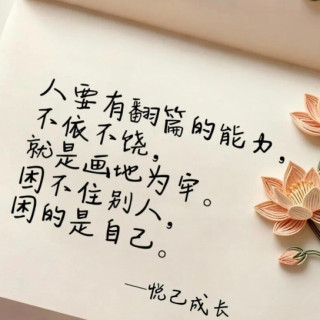 人要有翻篇的能力，
不依不饶，
就是画地为牢。
困不住别人，
困的是自己。
—悦己成长